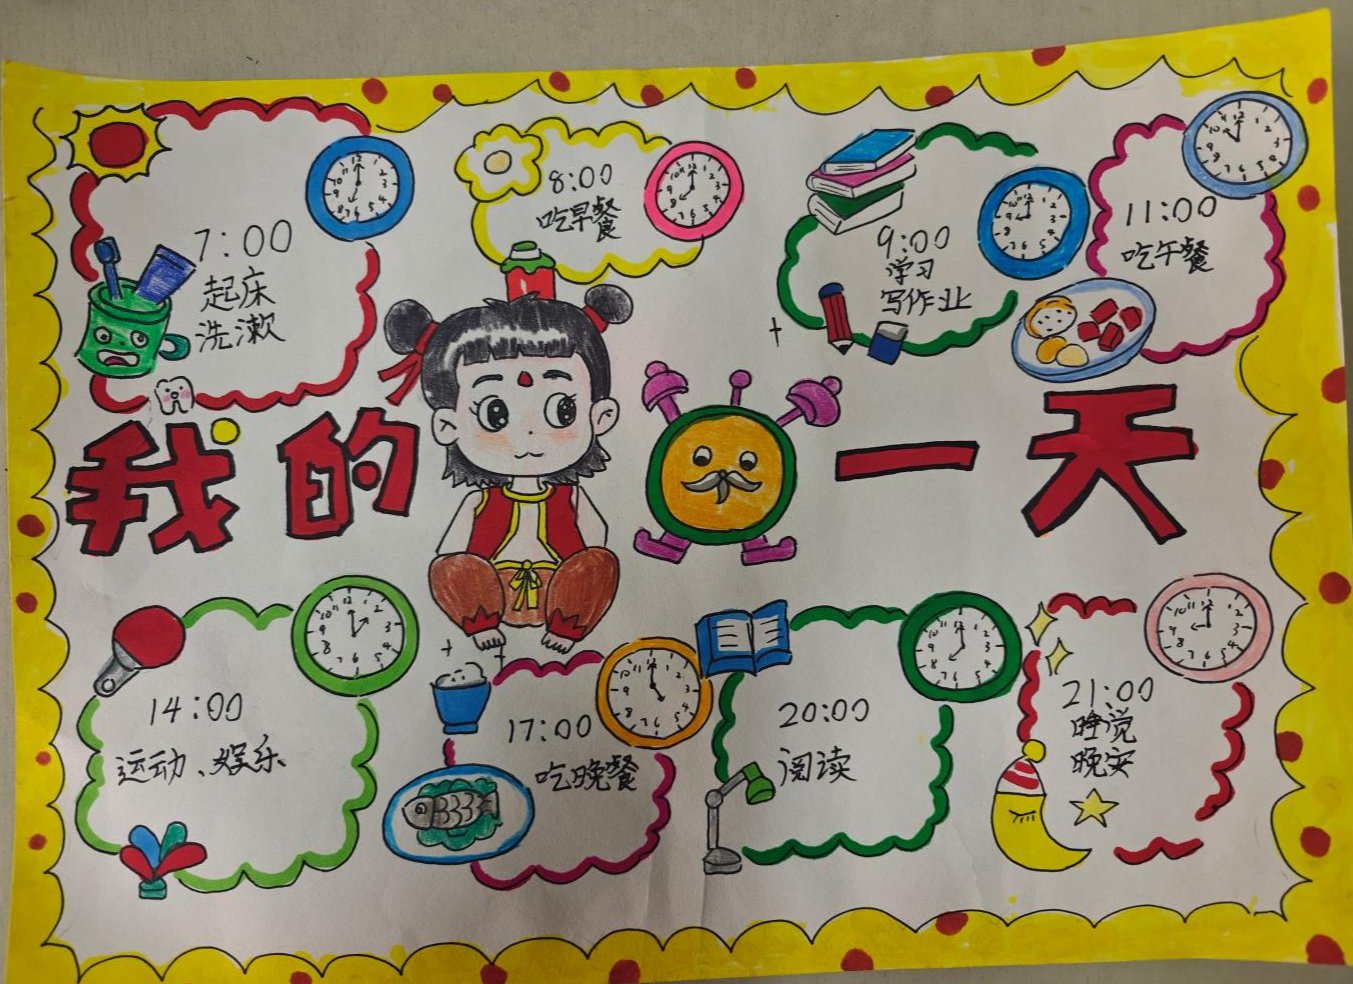 7:00
起床
洗漱
8:00
吃早餐
9:00
学习
写作业
11:00
吃午餐
我的一天
14:00
运动、娱乐
17:00
吃晚餐
20:00
阅读
21:00
睡觉
晚安